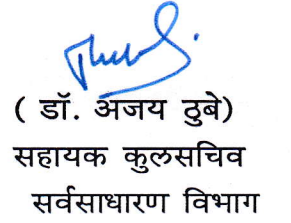 ( डॉ. अजय ठुबे)
सहायक कुलसचिव
सर्वसाधारण विभाग